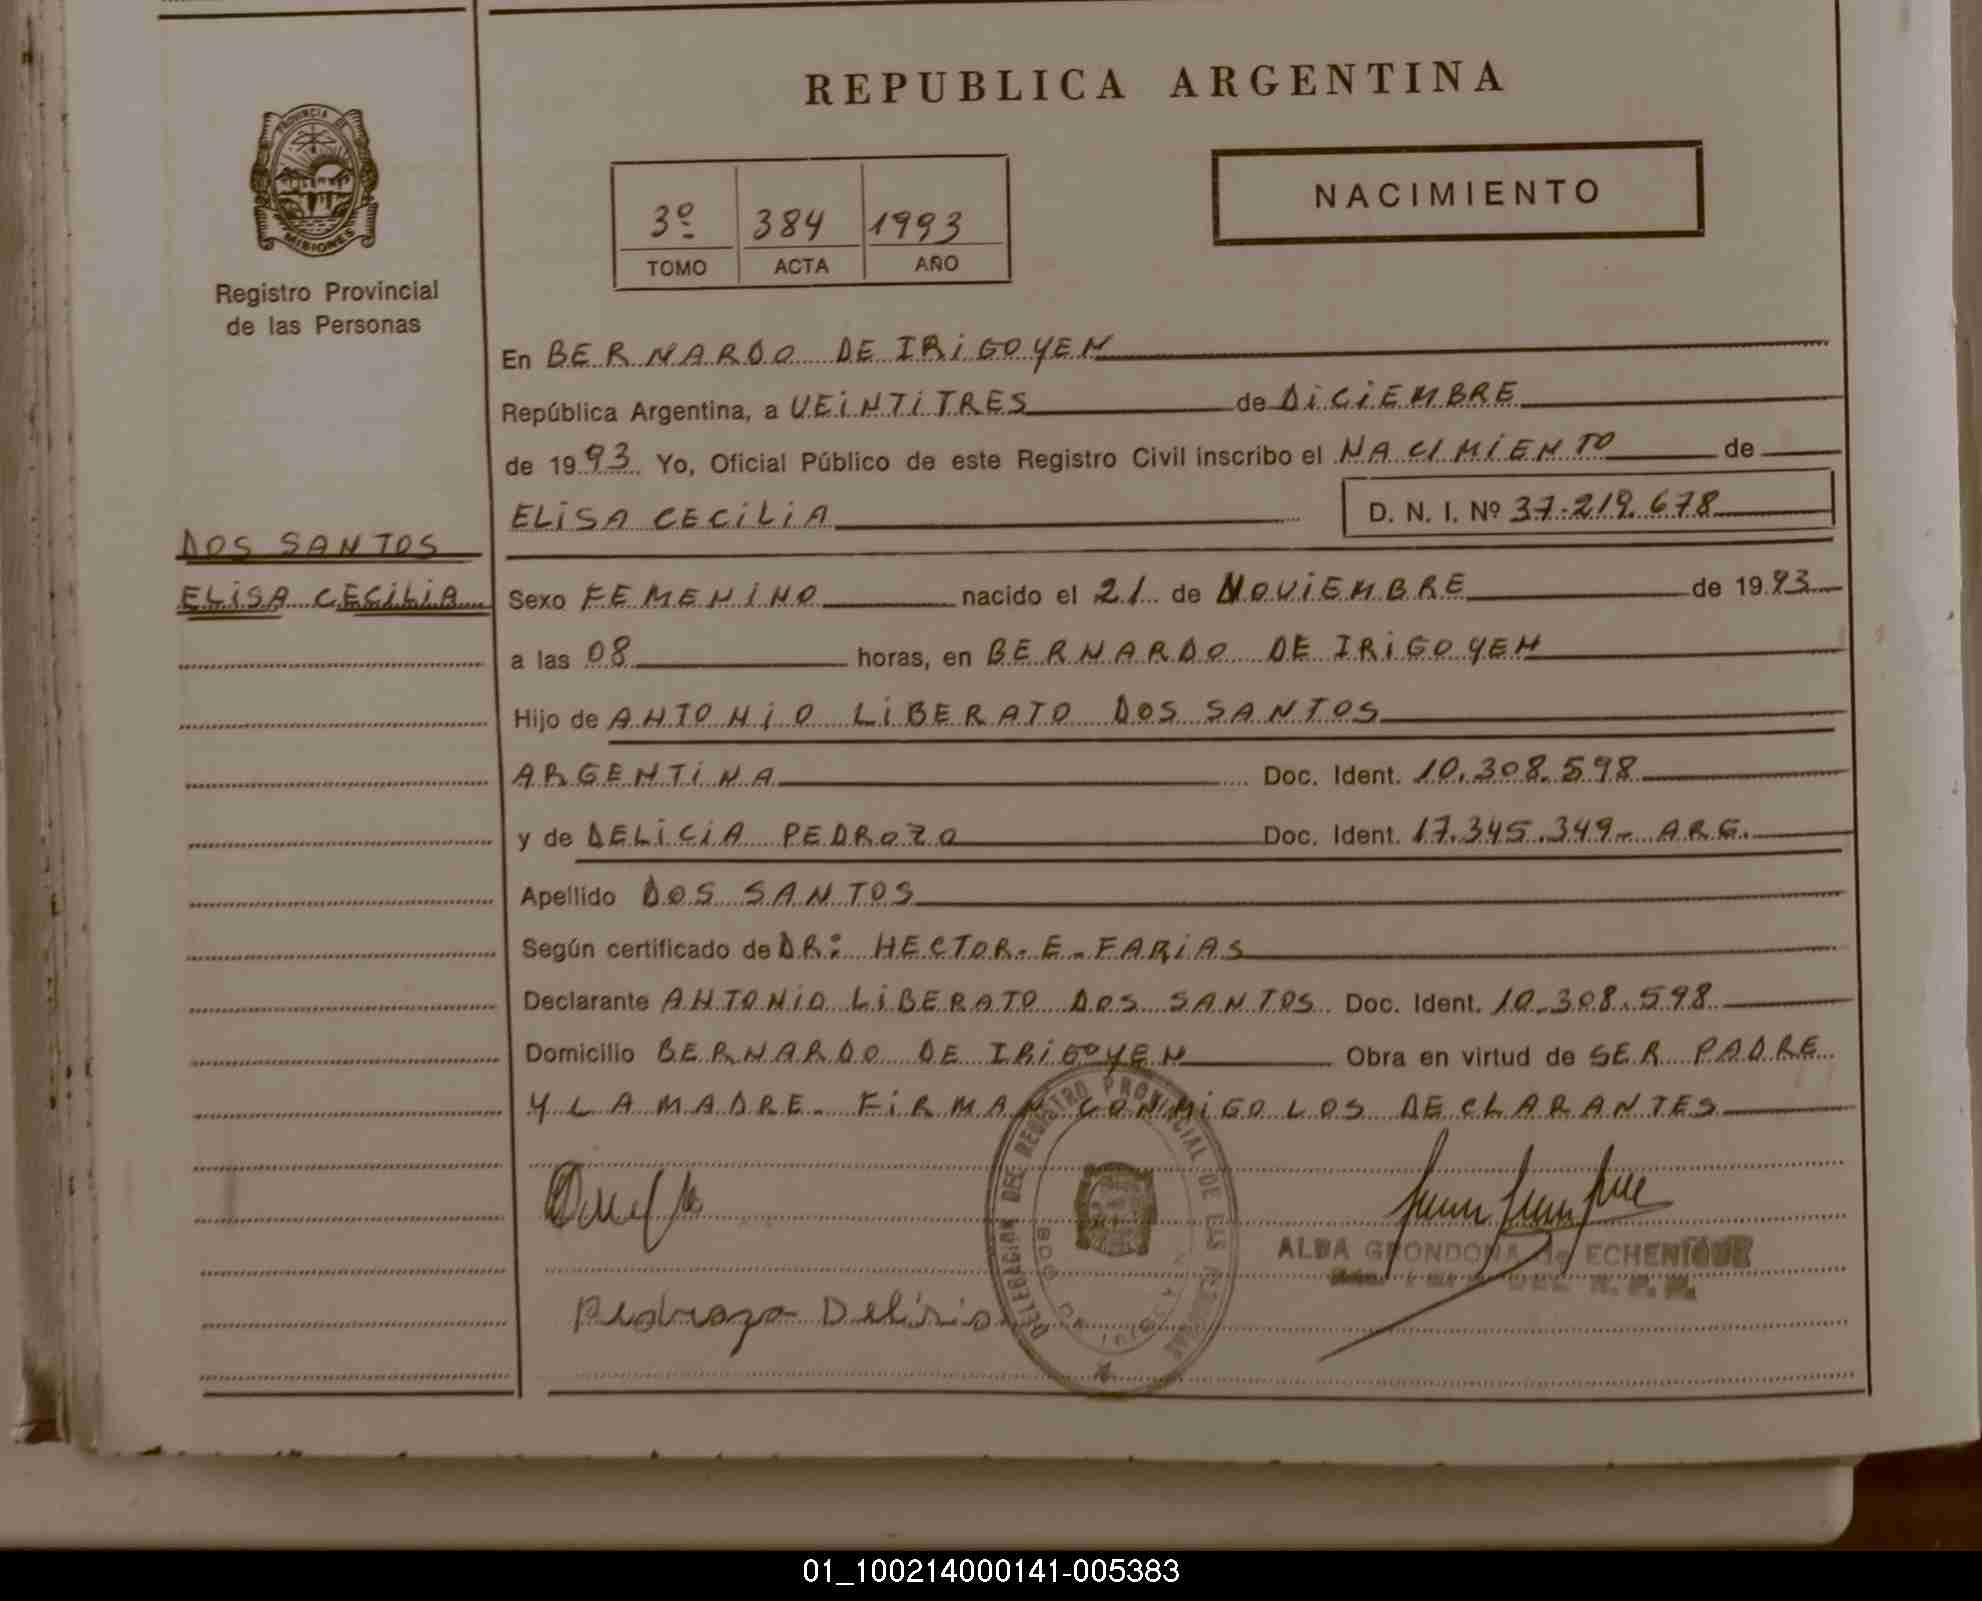 REPUBLICA ARGENTINA
PROVINCIA DE
MISIONES
Registro Provincial
de las Personas
NACIMIENTO
3º 384 1993
TOMO ACTA AÑO
En BERNARDO DE IRIGOYEN
República Argentina, a VEINTITRES de DICIEMBRE
de 1993 Yo, Oficial Público de este Registro Civil inscribo el NACIMIENTO de
ELISA CECILIA D. N. I. Nº 37.219.678
DOS SANTOS
ELISA CECILIA
Sexo FEMENINO nacido el 21 de NOVIEMBRE de 1993
a las 08 horas, en BERNARDO DE IRIGOYEN
Hijo de ANTONIO LIBERATO DOS SANTOS
ARGENTINA Doc. Ident. 10.308.598
y de DELICIA PEDROZO Doc. Ident. 17.345.349- ARG.
Apellido DOS SANTOS
Según certificado de DR: HECTOR. E. FARIAS
Declarante ANTONIO LIBERATO DOS SANTOS Doc. Ident. 10.308.598
Domicilio BERNARDO DE IRIGOYEN Obra en virtud de SER PADRE
Y LA MADRE. FIRMAN CONMIGO LOS DECLARANTES
DELEGACION DEL REGISTRO PROVINCIAL DE LAS
ALBA GRONDONA de ECHENIQUE
01_100214000141-005383